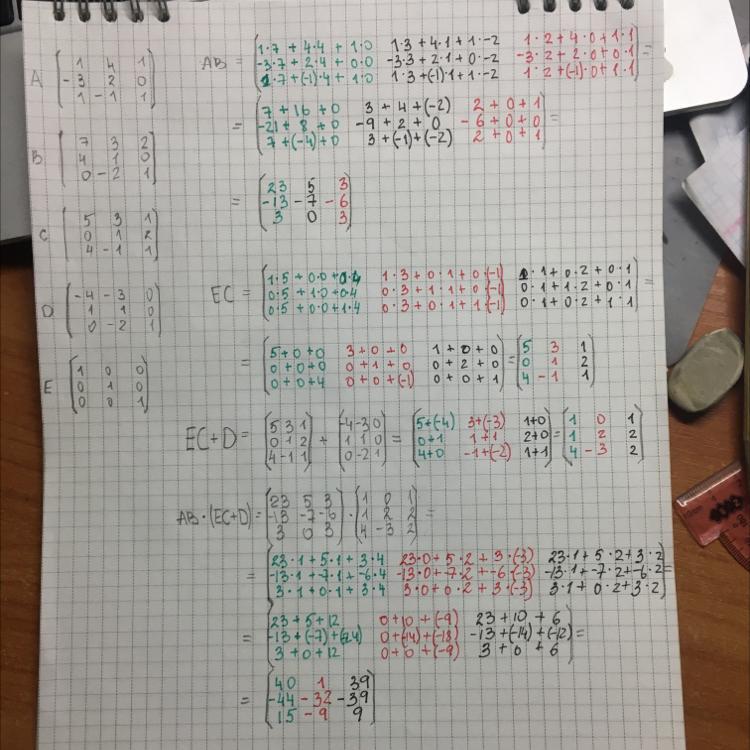 A ( 1 4 1
-3 2 0
1 -1 1 )
B ( 7 3 2
4 1 0
0 -2 1 )
C ( 5 3 1
0 1 2
4 -1 1 )
D ( -4 -3 0
1 1 0
0 -2 1 )
E ( 1 0 0
0 1 0
0 0 1 )
AB = ( 1·7 + 4·4 + 1·0 1·3 + 4·1 + 1·-2 1·2 + 4·0 + 1·1
-3·7 + 2·4 + 0·0 -3·3 + 2·1 + 0·-2 -3·2 + 2·0 + 0·1
1·7 + (-1)·4 + 1·0 1·3 + (-1)·1 + 1·-2 1·2 + (-1)·0 + 1·1 ) =
= ( 7 + 16 + 0 3 + 4 + (-2) 2 + 0 + 1
-21 + 8 + 0 -9 + 2 + 0 -6 + 0 + 0
7 + (-4) + 0 3 + (-1) + (-2) 2 + 0 + 1 ) =
= ( 23 5 3
-13 -7 -6
3 0 3 )
EC = ( 1·5 + 0·0 + 0·4 1·3 + 0·1 + 0·(-1) 1·1 + 0·2 + 0·1
0·5 + 1·0 + 0·4 0·3 + 1·1 + 0·(-1) 0·1 + 1·2 + 0·1
0·5 + 0·0 + 1·4 0·3 + 0·1 + 1·(-1) 0·1 + 0·2 + 1·1 ) =
= ( 5 + 0 + 0 3 + 0 + 0 1 + 0 + 0
0 + 0 + 0 0 + 1 + 0 0 + 2 + 0
0 + 0 + 4 0 + 0 + (-1) 0 + 0 + 1 ) = ( 5 3 1
0 1 2
4 -1 1 )
EC+D = ( 5 3 1
0 1 2
4 -1 1 ) + ( -4 -3 0
1 1 0
0 -2 1 ) = ( 5+(-4) 3+(-3) 1+0
0+1 1+1 2+0
4+0 -1+(-2) 1+1 ) = ( 1 0 1
1 2 2
4 -3 2 )
AB·(EC+D) = ( 23 5 3
-13 -7 -6
3 0 3 ) · ( 1 0 1
1 2 2
4 -3 2 ) =
= ( 23·1 + 5·1 + 3·4 23·0 + 5·2 + 3·(-3) 23·1 + 5·2 + 3·2
-13·1 + -7·1 + -6·4 -13·0 + -7·2 + -6·(-3) -13·1 + -7·2 + -6·2
3·1 + 0·1 + 3·4 3·0 + 0·2 + 3·(-3) 3·1 + 0·2 + 3·2 ) =
= ( 23 + 5 + 12 0 + 10 + (-9) 23 + 10 + 6
-13 + (-7) + (-24) 0 + (-14) + (-18) -13 + (-14) + (-12)
3 + 0 + 12 0 + 0 + (-9) 3 + 0 + 6 ) =
= ( 40 1 39
-44 -32 -39
15 -9 9 )